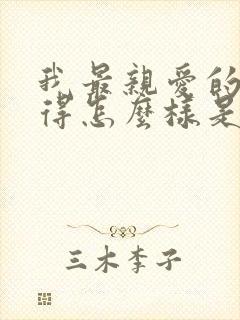 我最親愛的
得怎麼樣是
三木李子